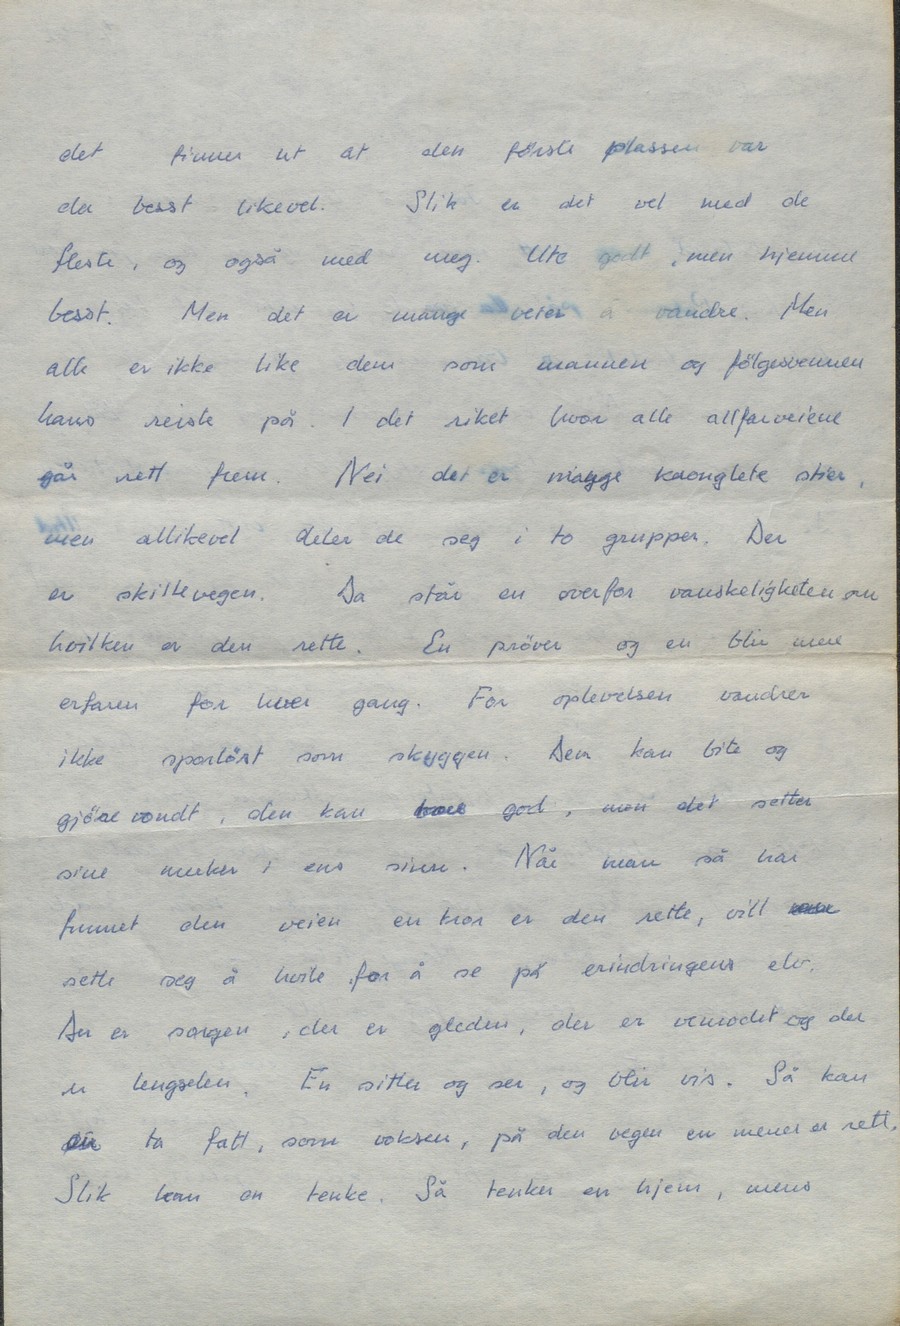 det finner ut at den förste plassen var
da besst likevel. Slik er det vel med de
fleste, og også med meg. Ute godt, men hjemme
besst. Men det er mange veier å vandre. Men
alle er ikke like dem som mannen og fölgesvennen
hans reiste på. I det riket hvor alle allfarveiene
går rett frem. Nei det er mange kronglete stier,
men allikevel deler de seg i to grupper. Der
er skillevegen. Da står en overfor vanskeligheten om
hvilken er den rette. En pröver og en blir mere
erfaren for hver gang. For oplevelsen vandrer
ikke sporlöst som skyggen. Den kan bite og
gjöre vondt, den kan god, men det setter
sine merker i ens sinn. Når man så har
funnet den veien en tror er den rette, vill
sette seg å hvile for å se på erindringens elv.
Der er sorgen, der er gleden, der er vemodet og der
er lengselen. En sitter og ser, og blir vis. Så kan
en ta fatt, som voksen, på den vegen en mener er rett.
Slik kan en tenke. Så tenker en hjem, mens